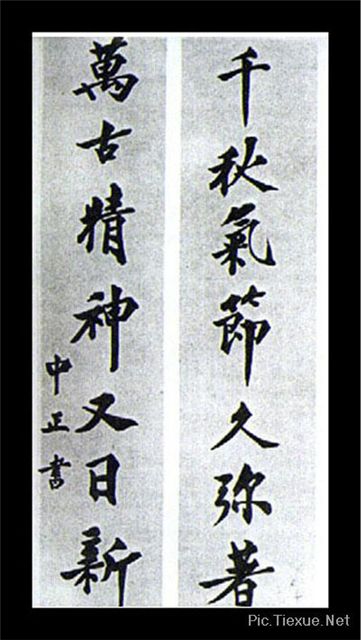 千秋氣節久弥著
萬古精神又日新
中正書
Pic.Tiexue.Net